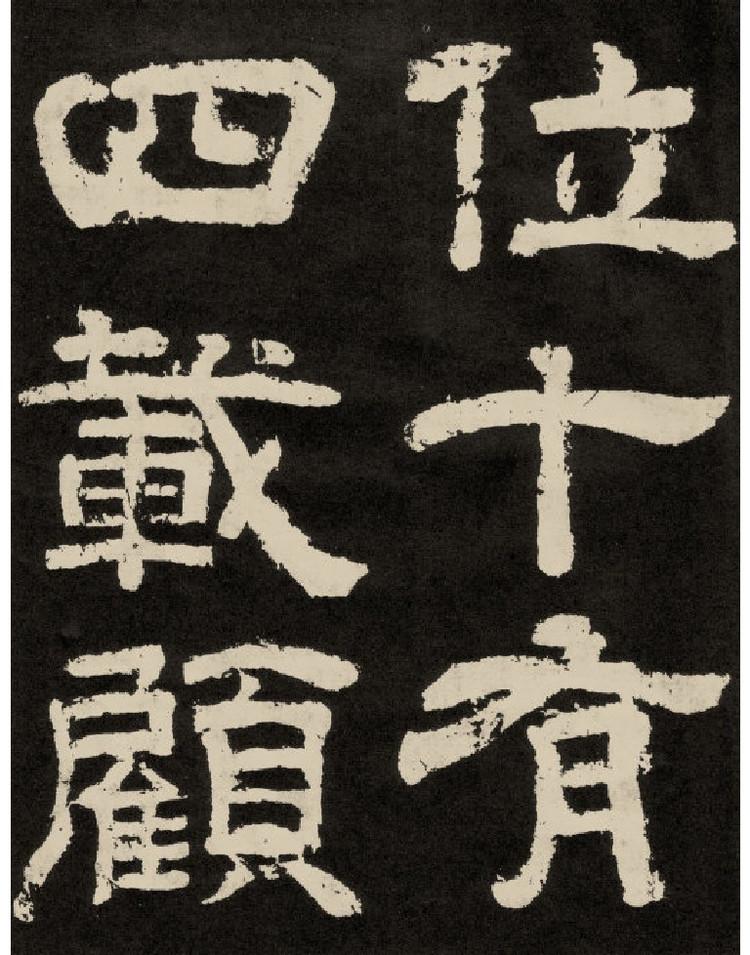 位十有
四載顧